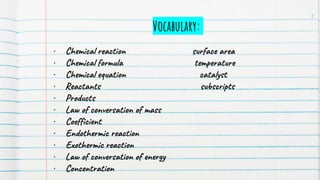 Vocabulary:
• Chemical reaction surface area
• Chemical formula temperature
• Chemical equation catalyst
• Reactants subscripts
• Products
• Law of conversation of mass
• Coefficient
• Endothermic reaction
• Exothermic reaction
• Law of conversation of energy
• Concentration